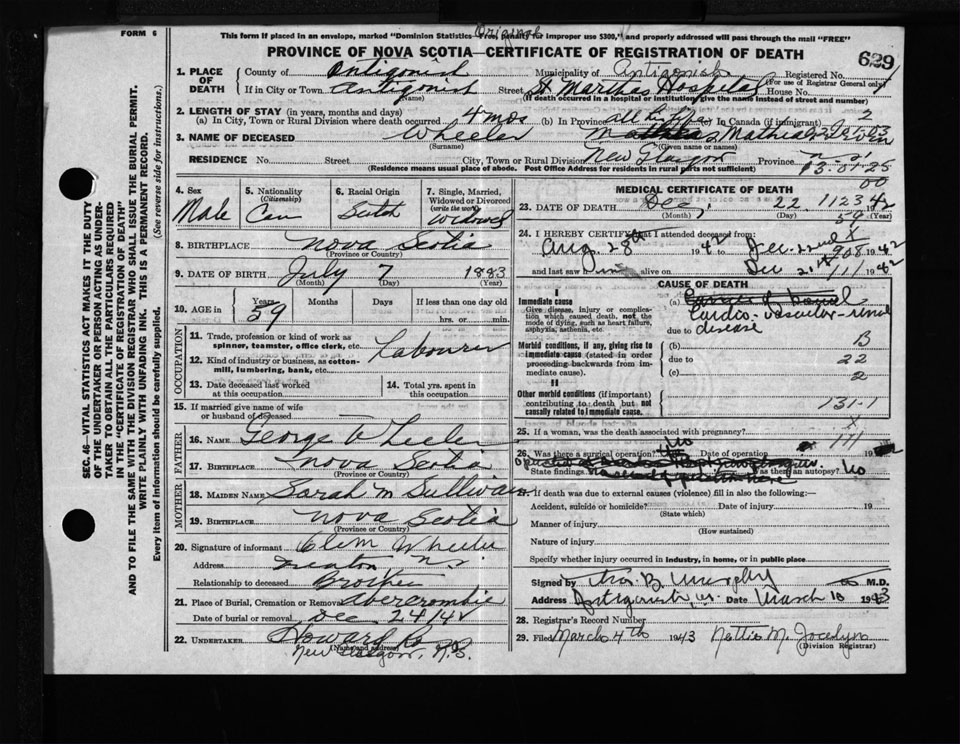 FORM 6
Original
This form if placed in an envelope, marked "Dominion Statistics—Free, penalty for improper use $300," and properly addressed will pass through the mail "FREE"
PROVINCE OF NOVA SCOTIA—CERTIFICATE OF REGISTRATION OF DEATH
629
1. PLACE OF DEATH County of Antigonish Municipality of Antigonish Registered No.
(For use of Registrar General only)
If in City or Town Antigonish Street St Marthas Hospital House No.
(Name) (If death occurred in a hospital or institution give the name instead of street and number)
2. LENGTH OF STAY (in years, months and days)
(a) In City, Town or Rural Division where death occurred 4 mos (b) In Province all his life (c) In Canada (if immigrant) 2
3. NAME OF DECEASED Wheeler Mathias
(Surname) (Given name or names)
RESIDENCE No. Street City, Town or Rural Division New Glasgow Province
(Residence means usual place of abode. Post Office Address for residents in rural parts not sufficient)
13-01-25
00
4. Sex 5. Nationality (Citizenship) 6. Racial Origin 7. Single, Married, Widowed or Divorced (write the word)
Male Can Dutch Widowed
8. BIRTHPLACE Nova Scotia
(Province or Country)
9. DATE OF BIRTH July 7 1883
(Month) (Day) (Year)
10. AGE in Years Months Days If less than one day old
59 hrs. or min.
OCCUPATION
11. Trade, profession or kind of work as spinner, teamster, office clerk, etc. Labourer
12. Kind of industry or business, as cotton-mill, lumbering, bank, etc.
13. Date deceased last worked at this occupation 14. Total yrs. spent in this occupation
15. If married give name of wife or husband of deceased
FATHER
16. NAME George Wheeler
17. BIRTHPLACE Nova Scotia
MOTHER
18. MAIDEN NAME Sarah M Sullivan
19. BIRTHPLACE Nova Scotia
(Province or Country)
20. Signature of informant Clem Wheeler
Address Trenton N S
Relationship to deceased Brother
21. Place of Burial, Cremation or Removal Abercrombie
Date of burial or removal Dec 24/42
22. UNDERTAKER Howard Co
(Name and address)
New Glasgow, N.S.
MEDICAL CERTIFICATE OF DEATH
23. DATE OF DEATH Dec, 22 1942
(Month) (Day) (Year)
1123
59
24. I HEREBY CERTIFY that I attended deceased from:
X
Aug. 28th 1942 to Dec. 22nd 1942
208
and last saw him alive on Dec 21st 1942
111
CAUSE OF DEATH
I
Immediate cause
Give disease, injury or complication which caused death, not the mode of dying, such as heart failure, asphyxia, asthenia, etc.
(a)
Cardio-vascular-renal
due to disease
Morbid conditions, if any, giving rise to immediate cause (stated in order proceeding backwards from immediate cause).
B
(b)
due to 22
(c) 2
II
Other morbid conditions (if important) contributing to death but not causally related to immediate cause.
131-1
25. If a woman, was the death associated with pregnancy? X
26. Was there a surgical operation? No Date of operation 19
171
State findings Was there an autopsy? No
27. If death was due to external causes (violence) fill in also the following:—
Accident, suicide or homicide? Date of injury 19
(State which)
Manner of injury
(How sustained)
Nature of injury
Specify whether injury occurred in industry, in home, or in public place
Signed by Thos. B. Murphy M.D.
Address Antigonish, N.S. Date March 10 1943
28. Registrar's Record Number
29. Filed March 4th 1943 Nettie M. Jocelyn
(Division Registrar)
SEC. 46—VITAL STATISTICS ACT MAKES IT THE DUTY
OF THE UNDERTAKER OR PERSON ACTING AS UNDER-
TAKER TO OBTAIN ALL THE PARTICULARS REQUIRED
IN THE "CERTIFICATE OF REGISTRATION OF DEATH"
AND TO FILE THE SAME WITH THE DIVISION REGISTRAR WHO SHALL ISSUE THE BURIAL PERMIT.
WRITE PLAINLY WITH UNFADING INK. THIS IS A PERMANENT RECORD.
Every item of information should be carefully supplied. (See reverse side for instructions.)